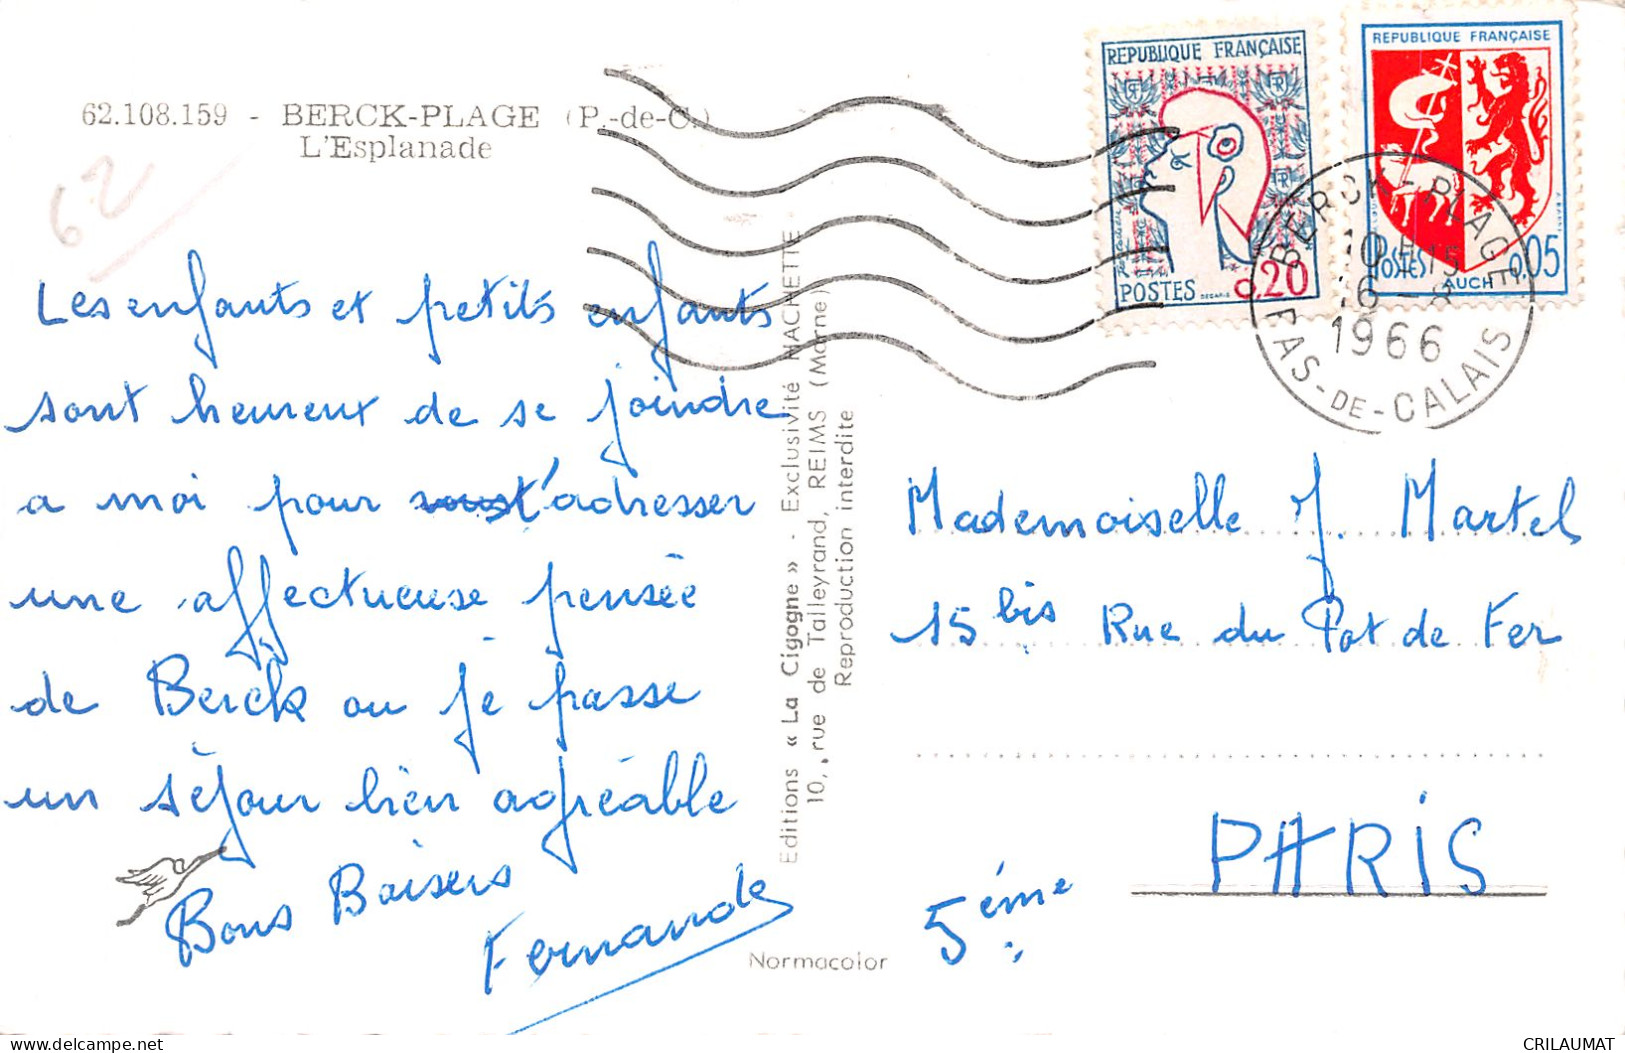 62.108.159 - BERCK-PLAGE (P.-de-C.)
L'Esplanade
62
Les enfants et petits enfants
sont heureux de se joindre
a moi pour t'adresser
une affectueuse pensée
de Berck ou je passe
un séjour bien agréable
Bons Baisers
Fernande
Editions « La Cigogne » - Exclusivité HACHETTE
10, rue de Talleyrand, REIMS (Marne)
Reproduction interdite
Normacolor
REPUBLIQUE FRANÇAISE
0,20
POSTES
DECARIS
REPUBLIQUE FRANÇAISE
POSTES
0,05
AUCH
BERCK-PLAGE
10 H 15
16 - 8
1966
PAS-DE-CALAIS
Mademoiselle J. Martel
15 bis Rue du Pot de Fer
PARIS
5ème
delcampe.net
CRILAUMAT